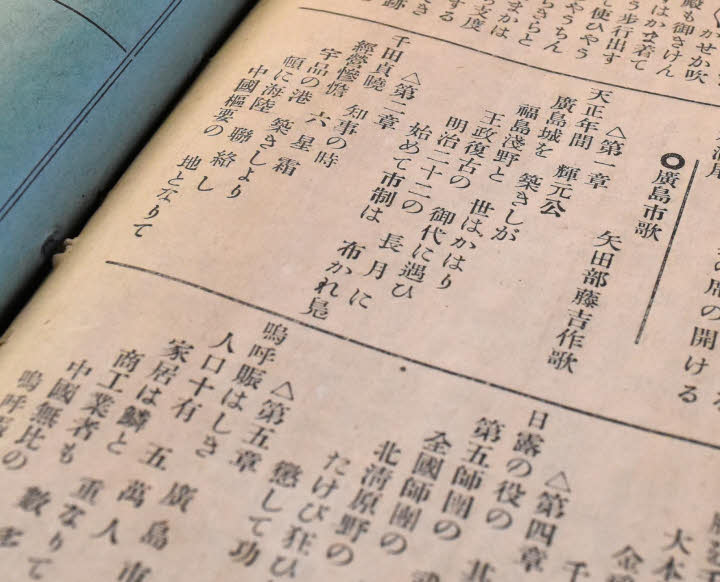 かせか吹
殿も御きけん
すはかま着て
う歩行出す
て使ひやう
やうちん
らきらと
まかは
る支度
する
の開ける
◎廣島市歌
矢田部藤吉作歌
△第一章
天正年間 輝元公
廣島城を 築きしが
福島淺野と 世はかはり
王政復古の 御代に遇ひ
明治二十二の 長月に
始めて市制は 布かれ鳧
△第二章
千田貞曉 知事の時
經營慘憺 六星霜
宇品の港 築きしより
頓に海陸 聯絡し
中國樞要の 地となりて
大本
金
千
△第四章
日露の役の
第五師團の 北
全國師團の
北清原野の
たけび狂ひ
懲して功
△第五章
嗚呼賑はしき 廣島市
人口十有 五萬人
家居は鱗と 重なりて
商工業者も 數多
中國無比の
嗚呼